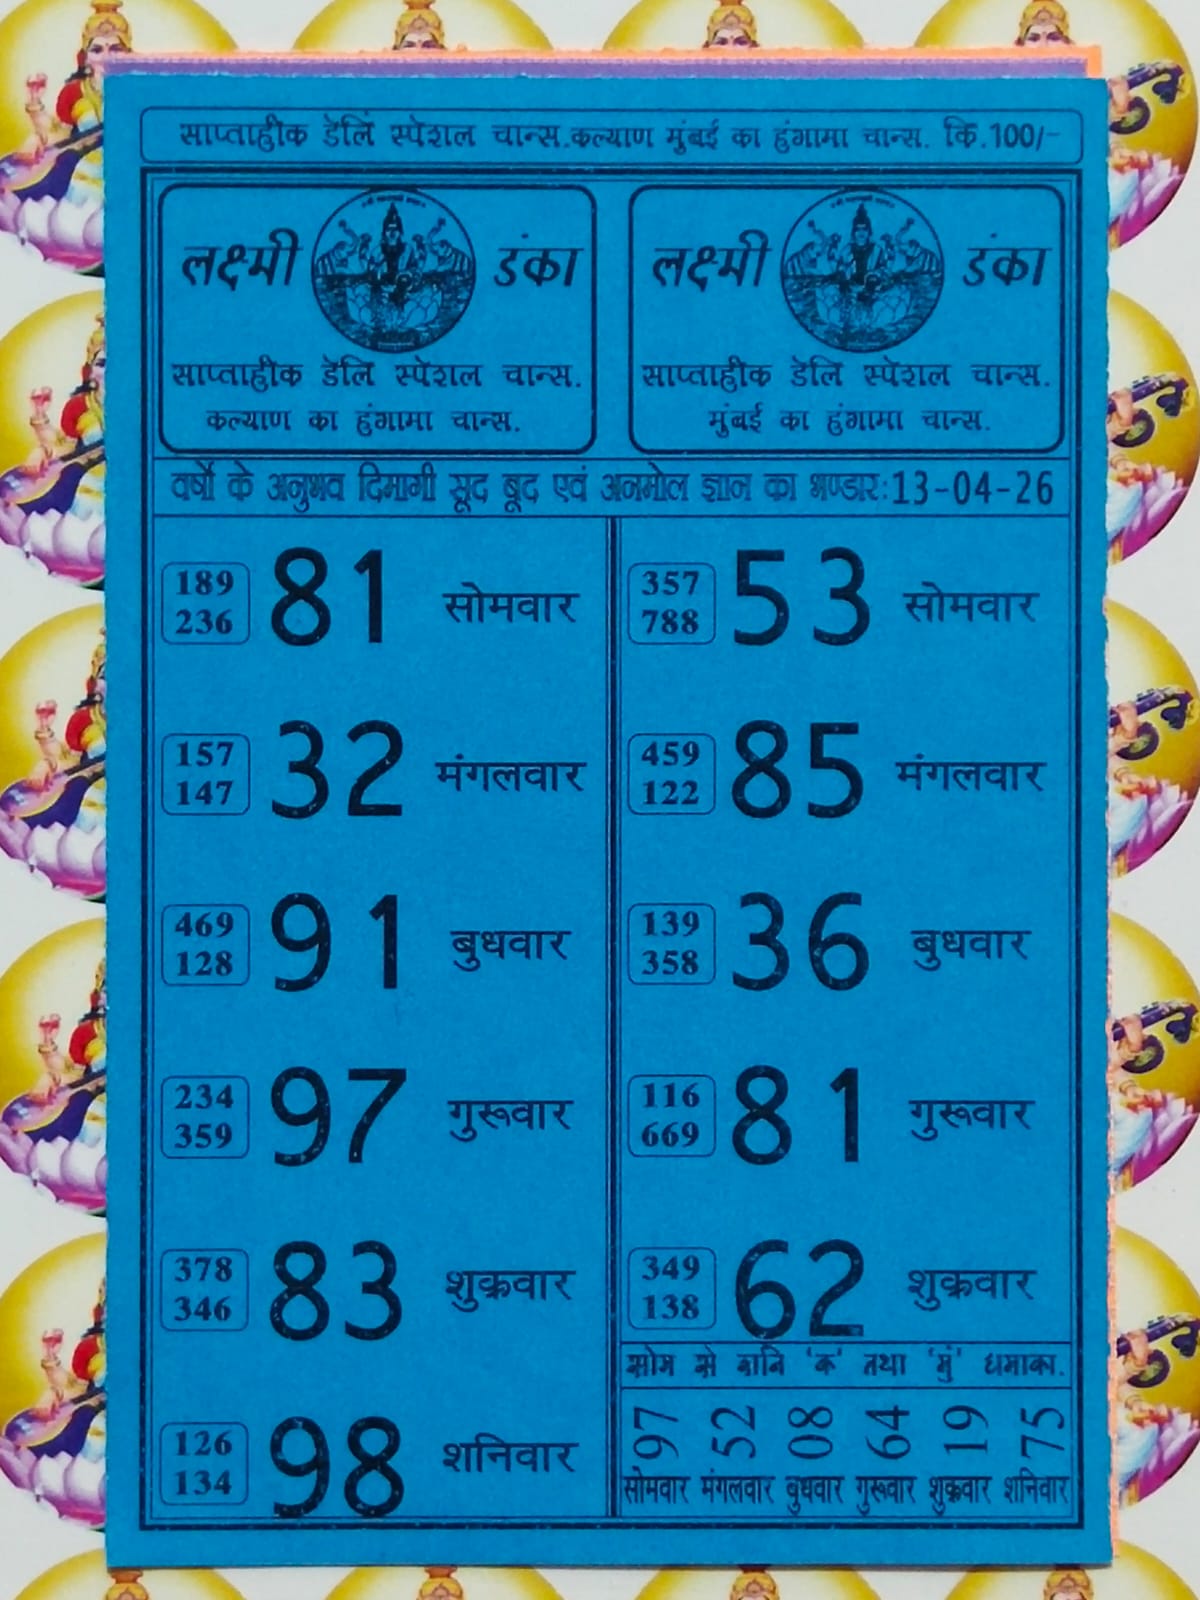 साप्ताहीक डेलि स्पेशल चान्स.कल्याण मुंबई का हंगामा चान्स. कि.100/-
लक्ष्मी डंका
साप्ताहीक डेलि स्पेशल चान्स.
कल्याण का हंगामा चान्स.
लक्ष्मी डंका
साप्ताहीक डेलि स्पेशल चान्स.
मुंबई का हंगामा चान्स.
वर्षो के अनुभव दिमागी सूद बूद एवं अनमोल ज्ञान का भण्डार:13-04-26
189
236
81 सोमवार
157
147
32 मंगलवार
469
128
91 बुधवार
234
359
97 गुरूवार
378
346
83 शुक्रवार
126
134
98 शनिवार
357
788
53 सोमवार
459
122
85 मंगलवार
139
358
36 बुधवार
116
669
81 गुरूवार
349
138
62 शुक्रवार
सोम से शनि 'क' तथा 'मुं' धमाका.
97 52 08 64 19 75
सोमवार मंगलवार बुधवार गुरूवार शुक्रवार शनिवार